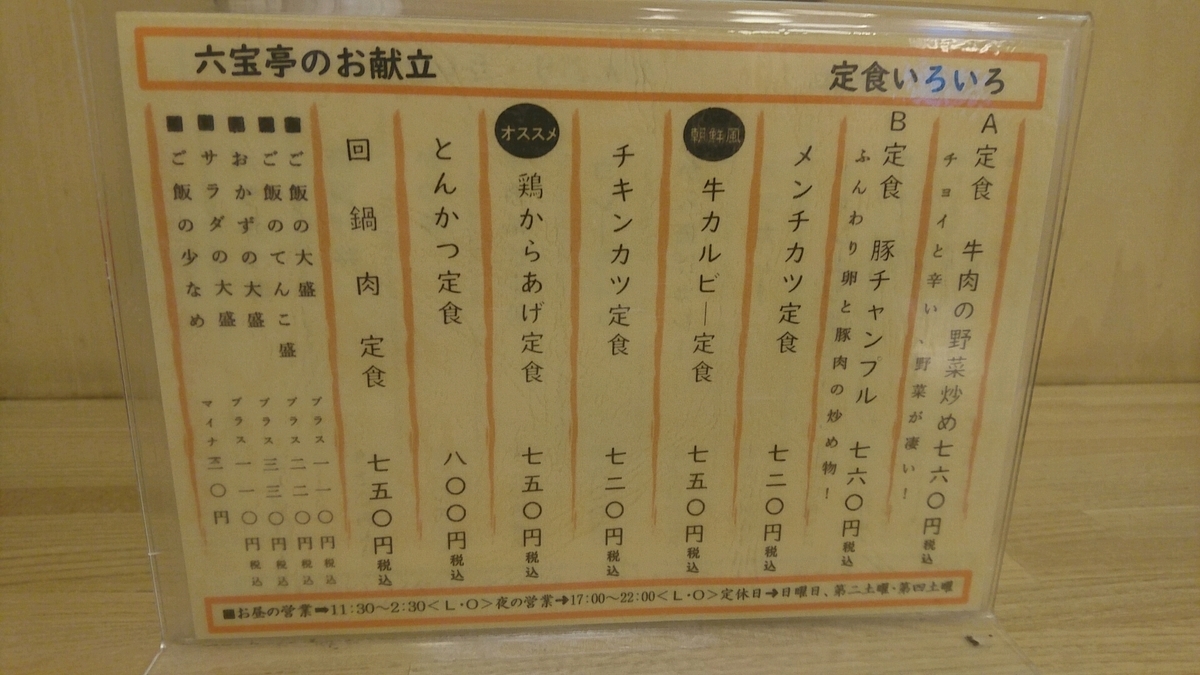 六宝亭のお献立
定食いろいろ
A定食 牛肉の野菜炒め 七六〇円税込
チョイと辛い、野菜が凄い！
B定食 豚チャンプル 七六〇円税込
ふんわり卵と豚肉の炒め物！
メンチカツ定食 七二〇円税込
朝鮮風 牛カルビー定食 七五〇円税込
チキンカツ定食 七二〇円税込
オススメ 鶏からあげ定食 七五〇円税込
とんかつ定食 八〇〇円税込
回鍋肉定食 七五〇円税込
■ご飯の大盛 プラス一一〇円税込
■ご飯のてんこ盛 プラス二二〇円税込
■おかずの大盛 プラス三三〇円税込
■サラダの大盛 プラス一一〇円税込
■ご飯の少なめ マイナ〇円
■お昼の営業➡11:30～2:30<L・O>夜の営業➔17:00～22:00<L・O>定休日➔日曜日、第二土曜・第四土曜